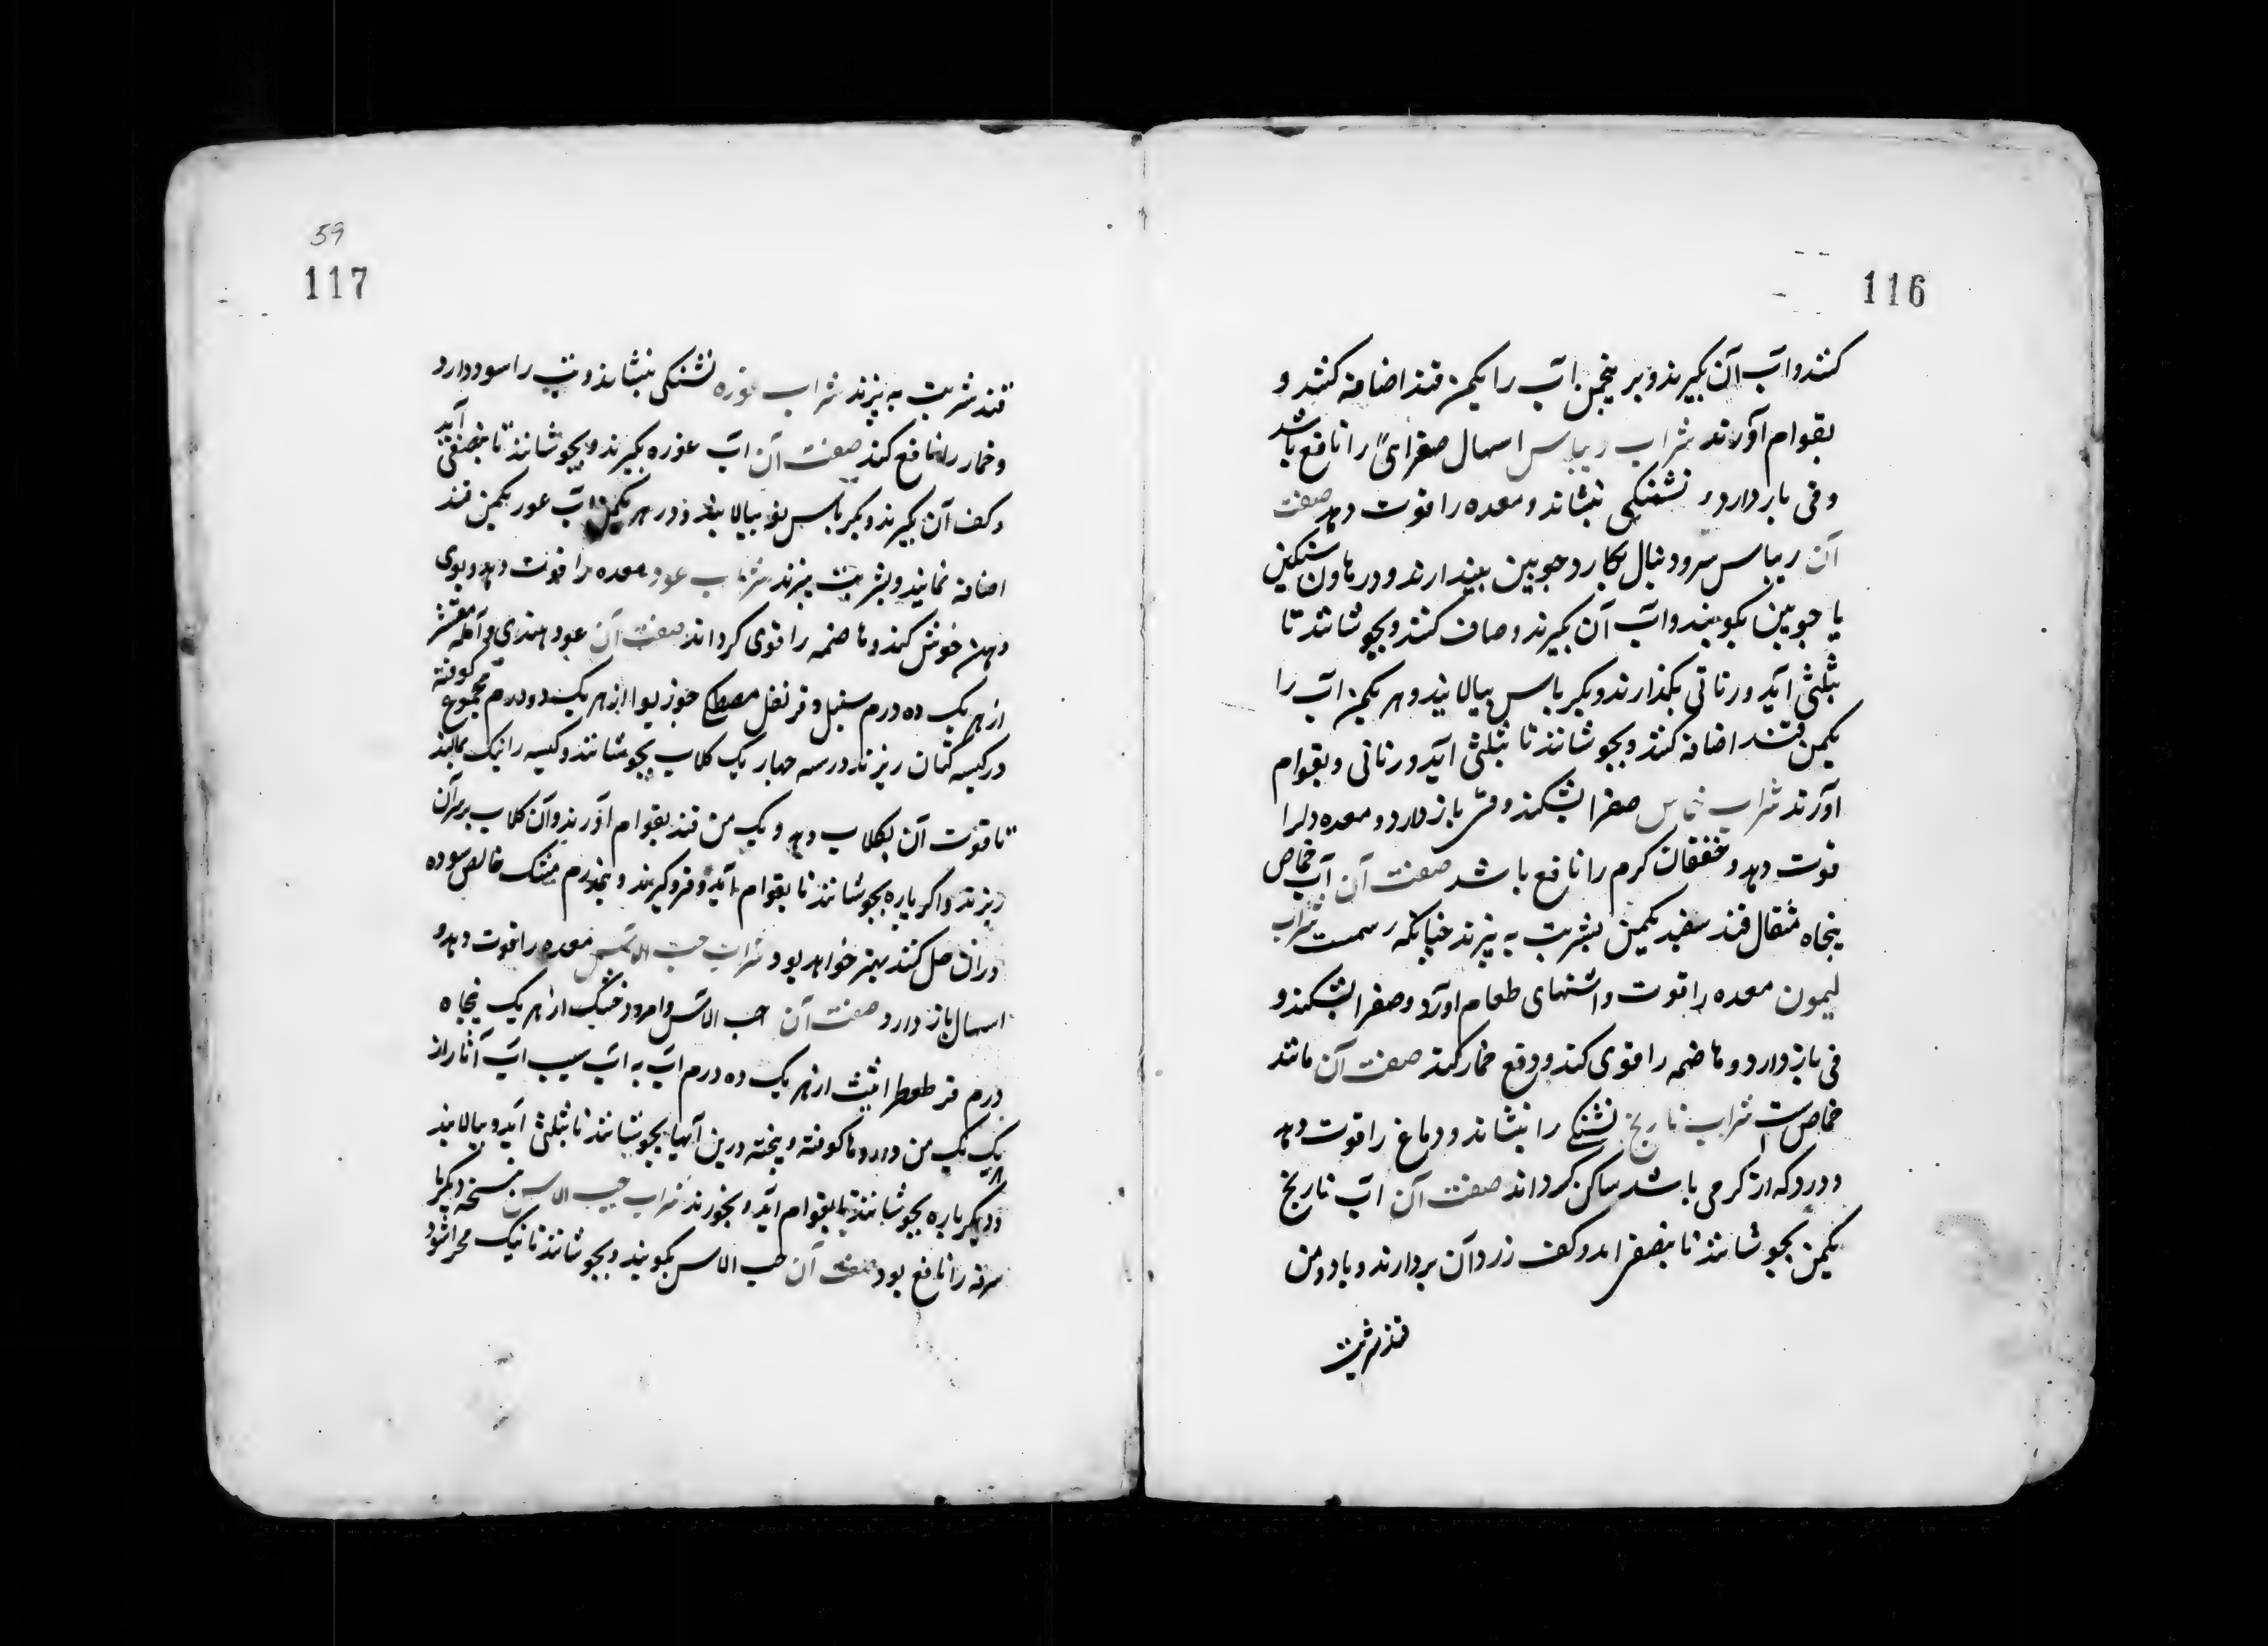 116
کنند و آب آن بگیرند و بر پنجمن آب را یکمن قند اضافه کنند و
بقوام آورند شراب ریباس اسهال صفرای را نافع باشد
و قی باز دارد و تشنکی بنشاند و معده را قوت دهد صفت
آن ریباس سر و دنبال بکارد چوبین بیندازند و در هاون سنکین
یا چوبین بکوبند و آب آن بگیرند و صاف کنند و بجوشانند تا
بثلثی آید و رتاتی بکذارند و بکرباس بپالایند و هر یکمن آب را
یکمن قند اضافه کنند و بجوشانند تا بثلثی آید و رتاتی و بقوام
آورند شراب حماض صفرا بشکند و قی باز دارد و معده و دلرا
قوت دهد و خفقان کرم را نافع باشد صفت آن آب حماض
پنجاه مثقال قند سفید یکمن بشربت به پزند چنانکه رسمست شراب
لیمون معده را قوت و اشتهای طعام آورد و صفرا بشکند و
قی باز دارد و هاضمه را قوی کند و دفع خمار کند صفت آن مانند
حماض است شراب نارنج تشنکی را بنشاند و دماغ را قوت دهد
و درد که از کرمی باشد ساکن کرداند صفت آن آب نارنج
یکمن بجوشانند تا بنصف آید و کف زرد آن بردارند و با دو من
قند شربت
59
117
قند شربت به پزند شراب غوره تشنکی بنشاند و تب را سود دارد
و خمار را نافع کند صفت آن آب غوره بگیرند و بجوشانند تا بنصفی آید
و کف آن بگیرند و بکرباس نو بپالایند و در هر یکمن آب غوره یکمن قند
اضافه نمایند و بشربت بپزند شراب عود معده را قوت دهد و بوی
دهن خوش کند و هاضمه را قوی کرداند صفت آن عود هندی و آمله مقشر
از هر یک ده درم سنبل و قرنفل مصطکی جوز بوا از هر یک دو درم مجموع کوفته
در کیسه کتان ریزند و در سه چهار یک کلاب بجوشانند و کیسه را نیک بمالند
تا قوت آن بکلاب دهد و یک من قند بقوام آورند و آن کلاب بر سر آن
ریزند و اکر باره بجوشانند تا بقوام آید و فرو کیرند و نیمدرم مشک خالص سوده
در ان حل کنند بهتر خواهد بود شراب حب الاس معده را قوت دهد و
اسهال باز دارد صفت آن حب الاس و امرود خشک از هر یک پنجاه
درم قرط طراثیث از هر یک ده درم آب به آب سیب آب انار از
هر یک یک من داروها کوفته و پخته درین آبها بجوشانند تا بثلثی آید و بپالایند
و دیکر باره بجوشانند تا بقوام آید و بخورند شراب حب الاس نسخه دیکر تا
سرفه را نافع بود صفت آن حب الاس بکوبند و بجوشانند تا نیک مهرا شود